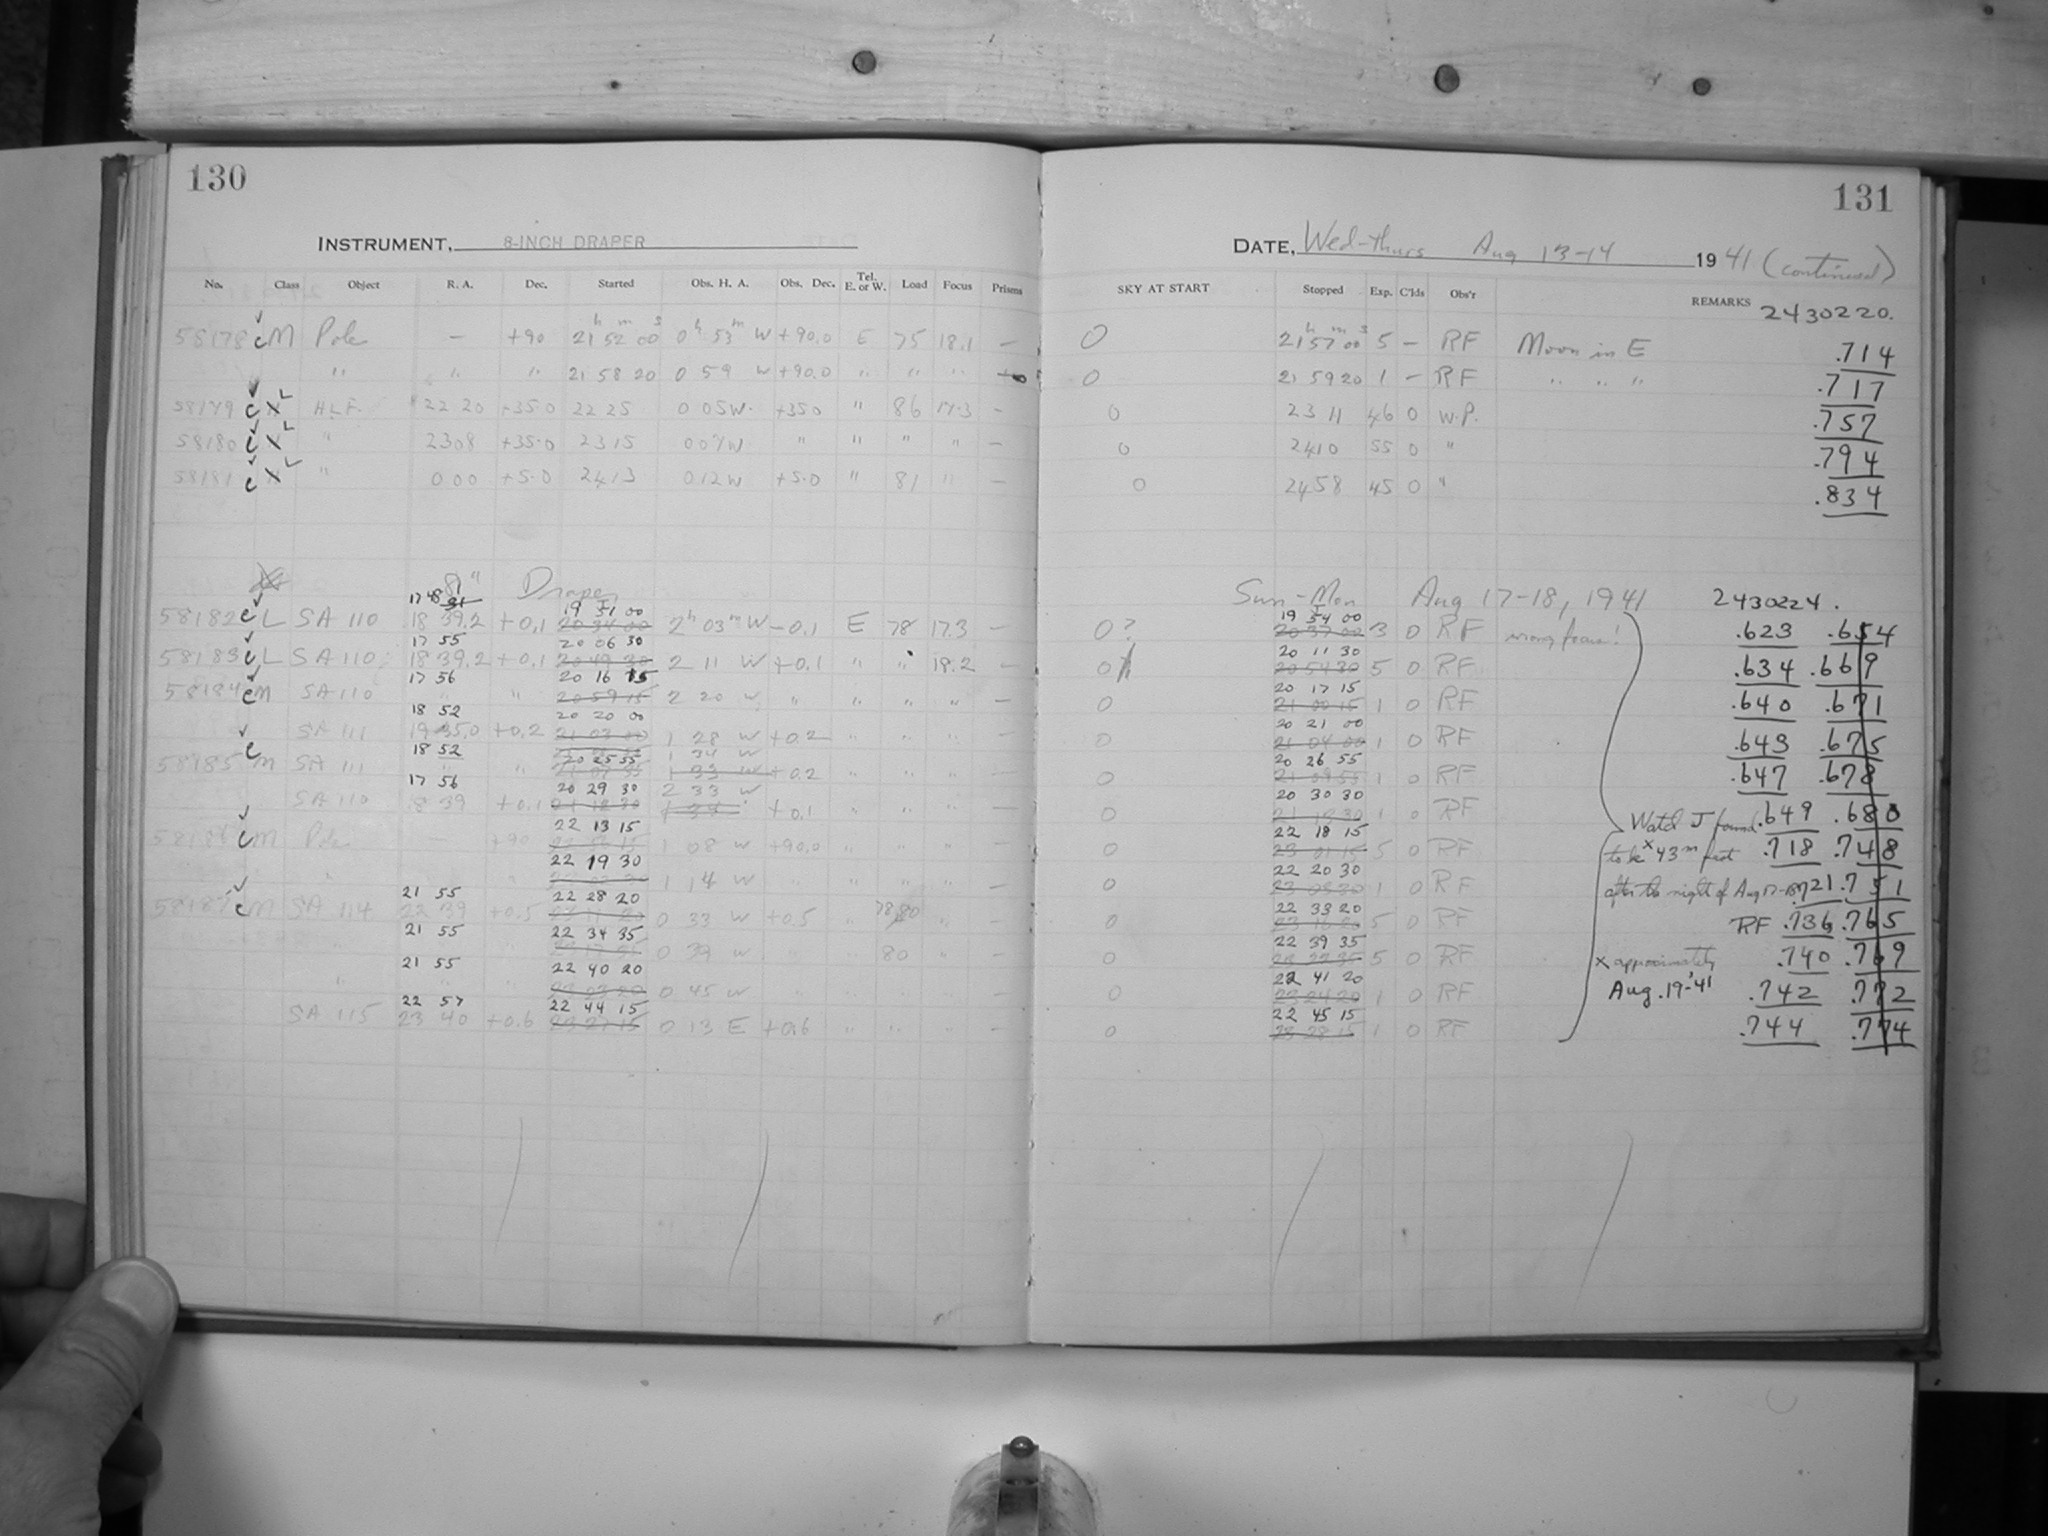 130
131
INSTRUMENT, 8-INCH DRAPER
DATE, Wed-Thurs Aug 13-14 1941 (continued)
No. Class Object R. A. Dec. Started Obs. H. A. Obs. Dec. Tel. E. or W. Load Focus Prisms SKY AT START Stopped Exp. C'lds Obs'r REMARKS
2430220.
58178 c M Pole — +90 21 52 00 0 53 W +90.0 E 75 18.1 — 0 21 57 00 5 — RF Moon in E .714
" " " 21 58 20 0 59 W +90.0 " " " 0 21 59 20 1 — RF " " " .717
58179 c X H.L.F. 22 20 +35.0 22 25 0 05 W. +35.0 " 86 17.3 — 0 23 11 46 0 W.P. .757
58180 c X " 23 08 +35.0 23 15 0 07 W " " " " — 0 24 10 55 0 " .794
58181 c X " 0 00 +5.0 24 13 0 12 W +5.0 " 81 " — 0 24 58 45 0 " .834
8" Draper Sun-Mon Aug 17-18, 1941 2430224.
17 48 19 51 00 19 54 00
58182 c L SA 110 18 39.2 +0.1 20 34 00 2h 03m W -0.1 E 78 17.3 — 0? 20 37 00 3 0 RF wrong focus! .623 .654
17 55 20 06 30 20 11 30
58183 c L SA 110 18 39.2 +0.1 20 49 30 2 11 W +0.1 " " 18.2 — 0 20 54 30 5 0 RF .634 .669
17 56 20 16 15 20 17 15
58184 c M SA 110 " " 20 59 15 2 20 W " " " " — 0 21 00 15 1 0 RF .640 .671
18 52 20 20 00 20 21 00
SA 111 19 35.0 +0.2 21 03 00 1 28 W +0.2 " " " — 0 21 04 00 1 0 RF .643 .675
18 52 20 25 55 20 26 55
58185 c M SA 111 " " 1 33 W +0.2 " " " — 0 21 09 55 1 0 RF .647 .678
17 56 20 29 30 2 33 W 20 30 30
SA 110 18 39 +0.1 +0.1 " " " — 0 1 0 RF .649 .680
22 13 15 Watch J found 22 18 15
58186 c M Pole — +90 1 08 W +90.0 " " " — 0 23 01 15 5 0 RF to be x 43m fast .718 .748
22 19 30 22 20 30
1 14 W " " " " — 0 1 0 RF after the night of Aug 17-18 .721 .751
21 55 22 28 20 22 33 20
58187 c M SA 114 22 39 +0.5 23 11 20 0 33 W +0.5 " 78 80 " — 0 23 16 20 5 0 RF RF .736 .765
21 55 22 34 35 22 39 35
" 0 39 W " " 80 " — 0 23 22 35 5 0 RF x approximately .740 .769
21 55 22 40 20 22 41 20
" 23 23 20 0 45 W " " " " — 0 23 24 20 1 0 RF Aug. 19-'41 .742 .772
22 57 22 44 15 22 45 15
SA 115 23 40 +0.6 23 27 15 0 13 E +0.6 " " " — 0 23 28 15 1 0 RF .744 .774